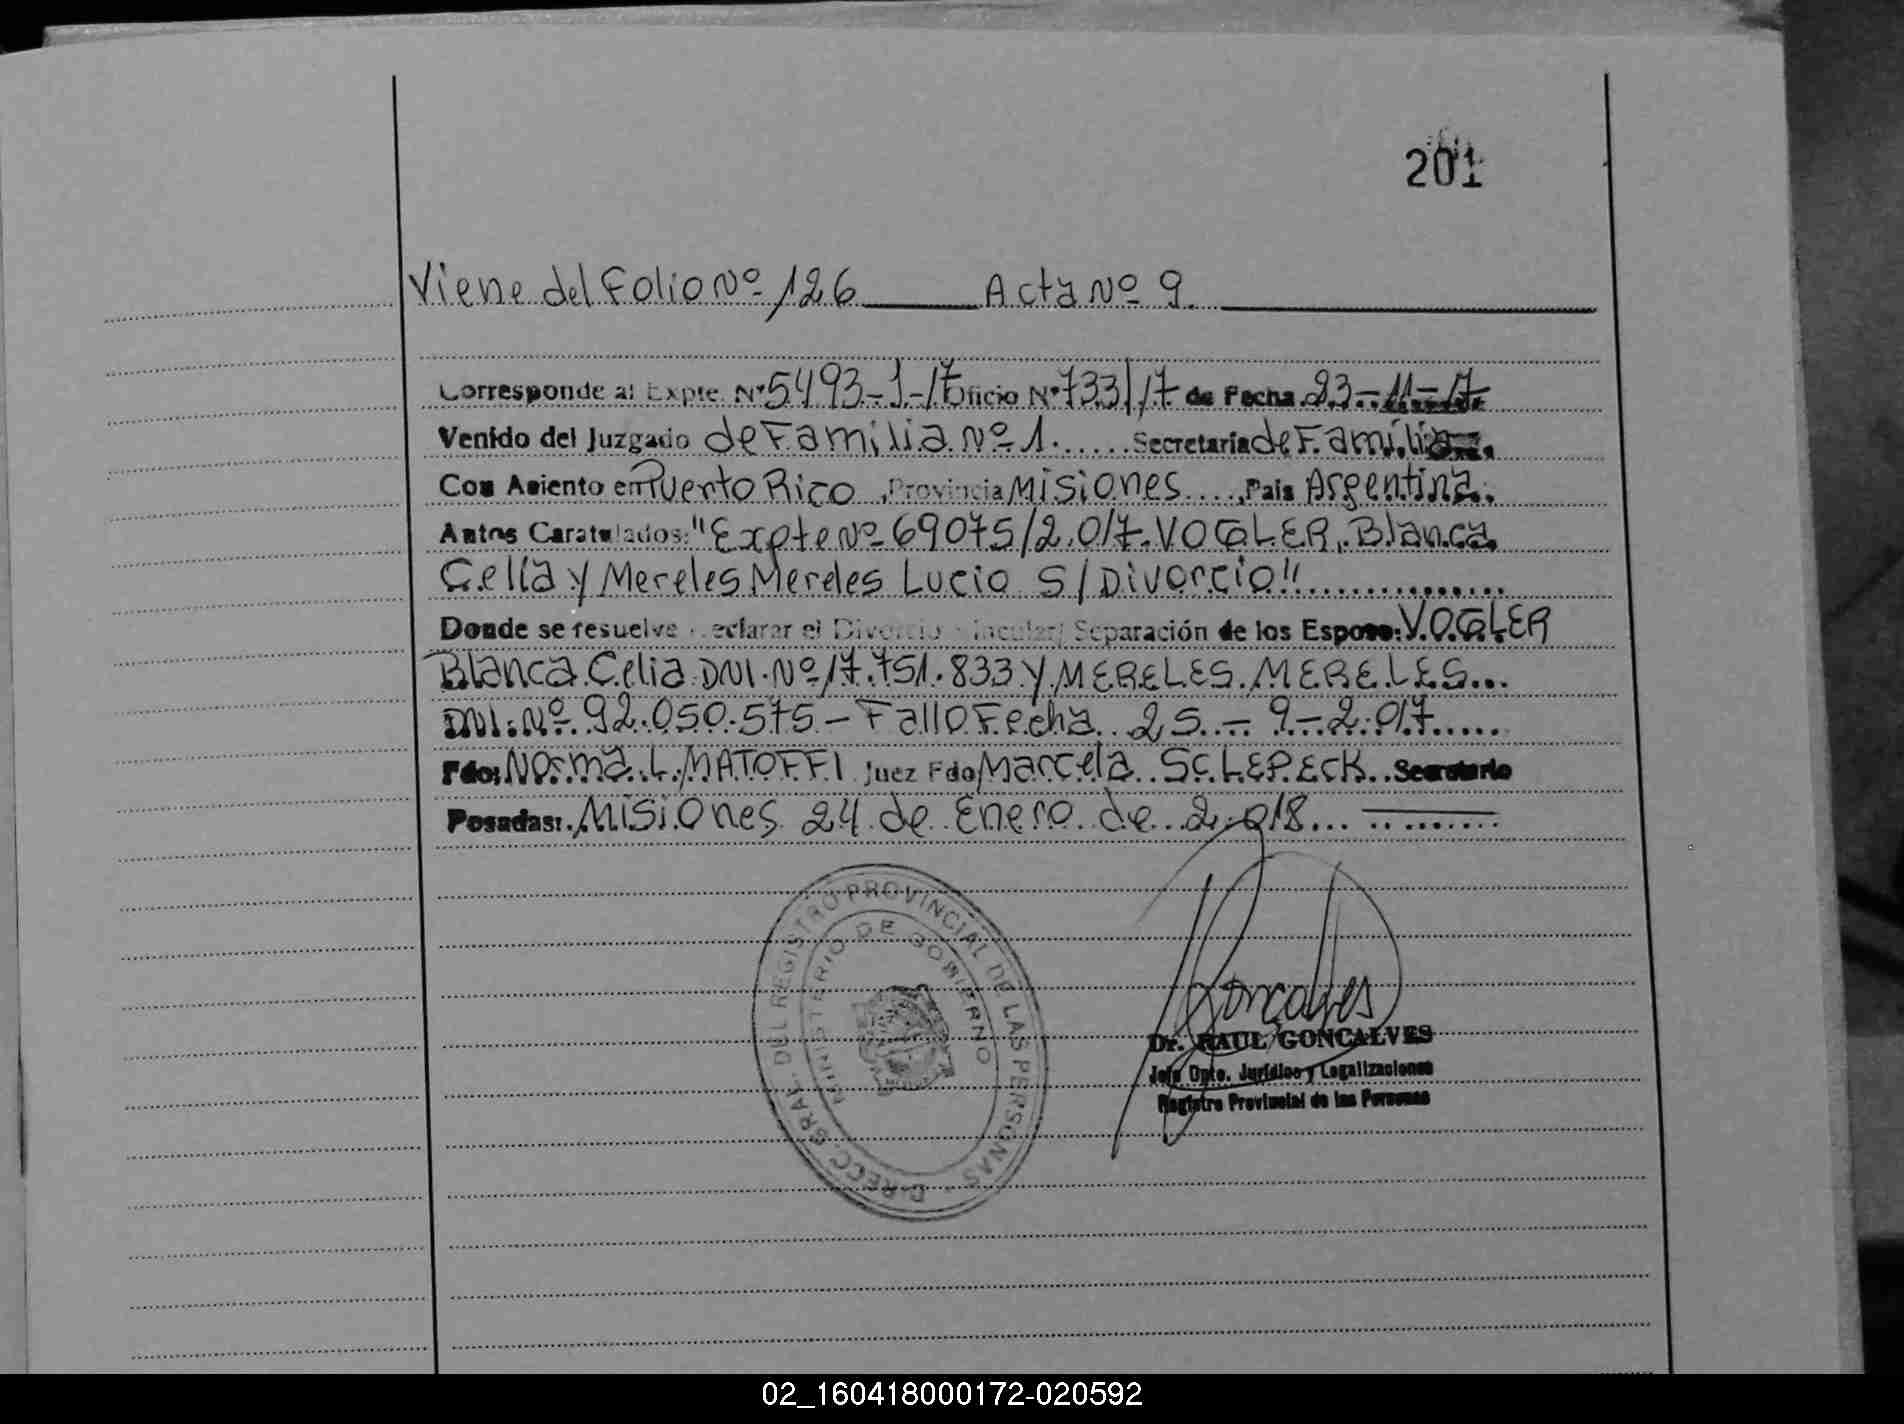 201
Viene del Folio Nº 126 Acta Nº 9.
Corresponde al Expte. Nº 5493-1-17 Oficio Nº 733/17 de Fecha 23-11-17
Venido del Juzgado de Familia Nº 1. Secretaría de Familia.
Con Asiento en Puerto Rico, Provincia Misiones, País Argentina.
Autos Caratulados: "Expte Nº 69075/2017. VOGLER, Blanca
Celia y Mereles Mereles Lucio S/Divorcio"
Donde se resuelve declarar el Divorcio Vincular/Separación de los Esposos: VOGLER
Blanca Celia DNI. Nº 17.751.833 y MERELES MERELES
DNI. Nº 92.050.575 - Fallo Fecha 25 - 9 - 2017
Fdo: Norma L. MATOFFI Juez Fdo Marcela SCLEPECK. Secretario
Posadas: Misiones 24 de Enero de 2018
DIRECC. GRAL. DEL REGISTRO PROVINCIAL DE LAS PERSONAS
MINISTERIO DE GOBIERNO
Goncalves
Dr. RAUL GONCALVES
Jefe Dpto. Jurídico y Legalizaciones
Registro Provincial de las Personas
02_160418000172-020592